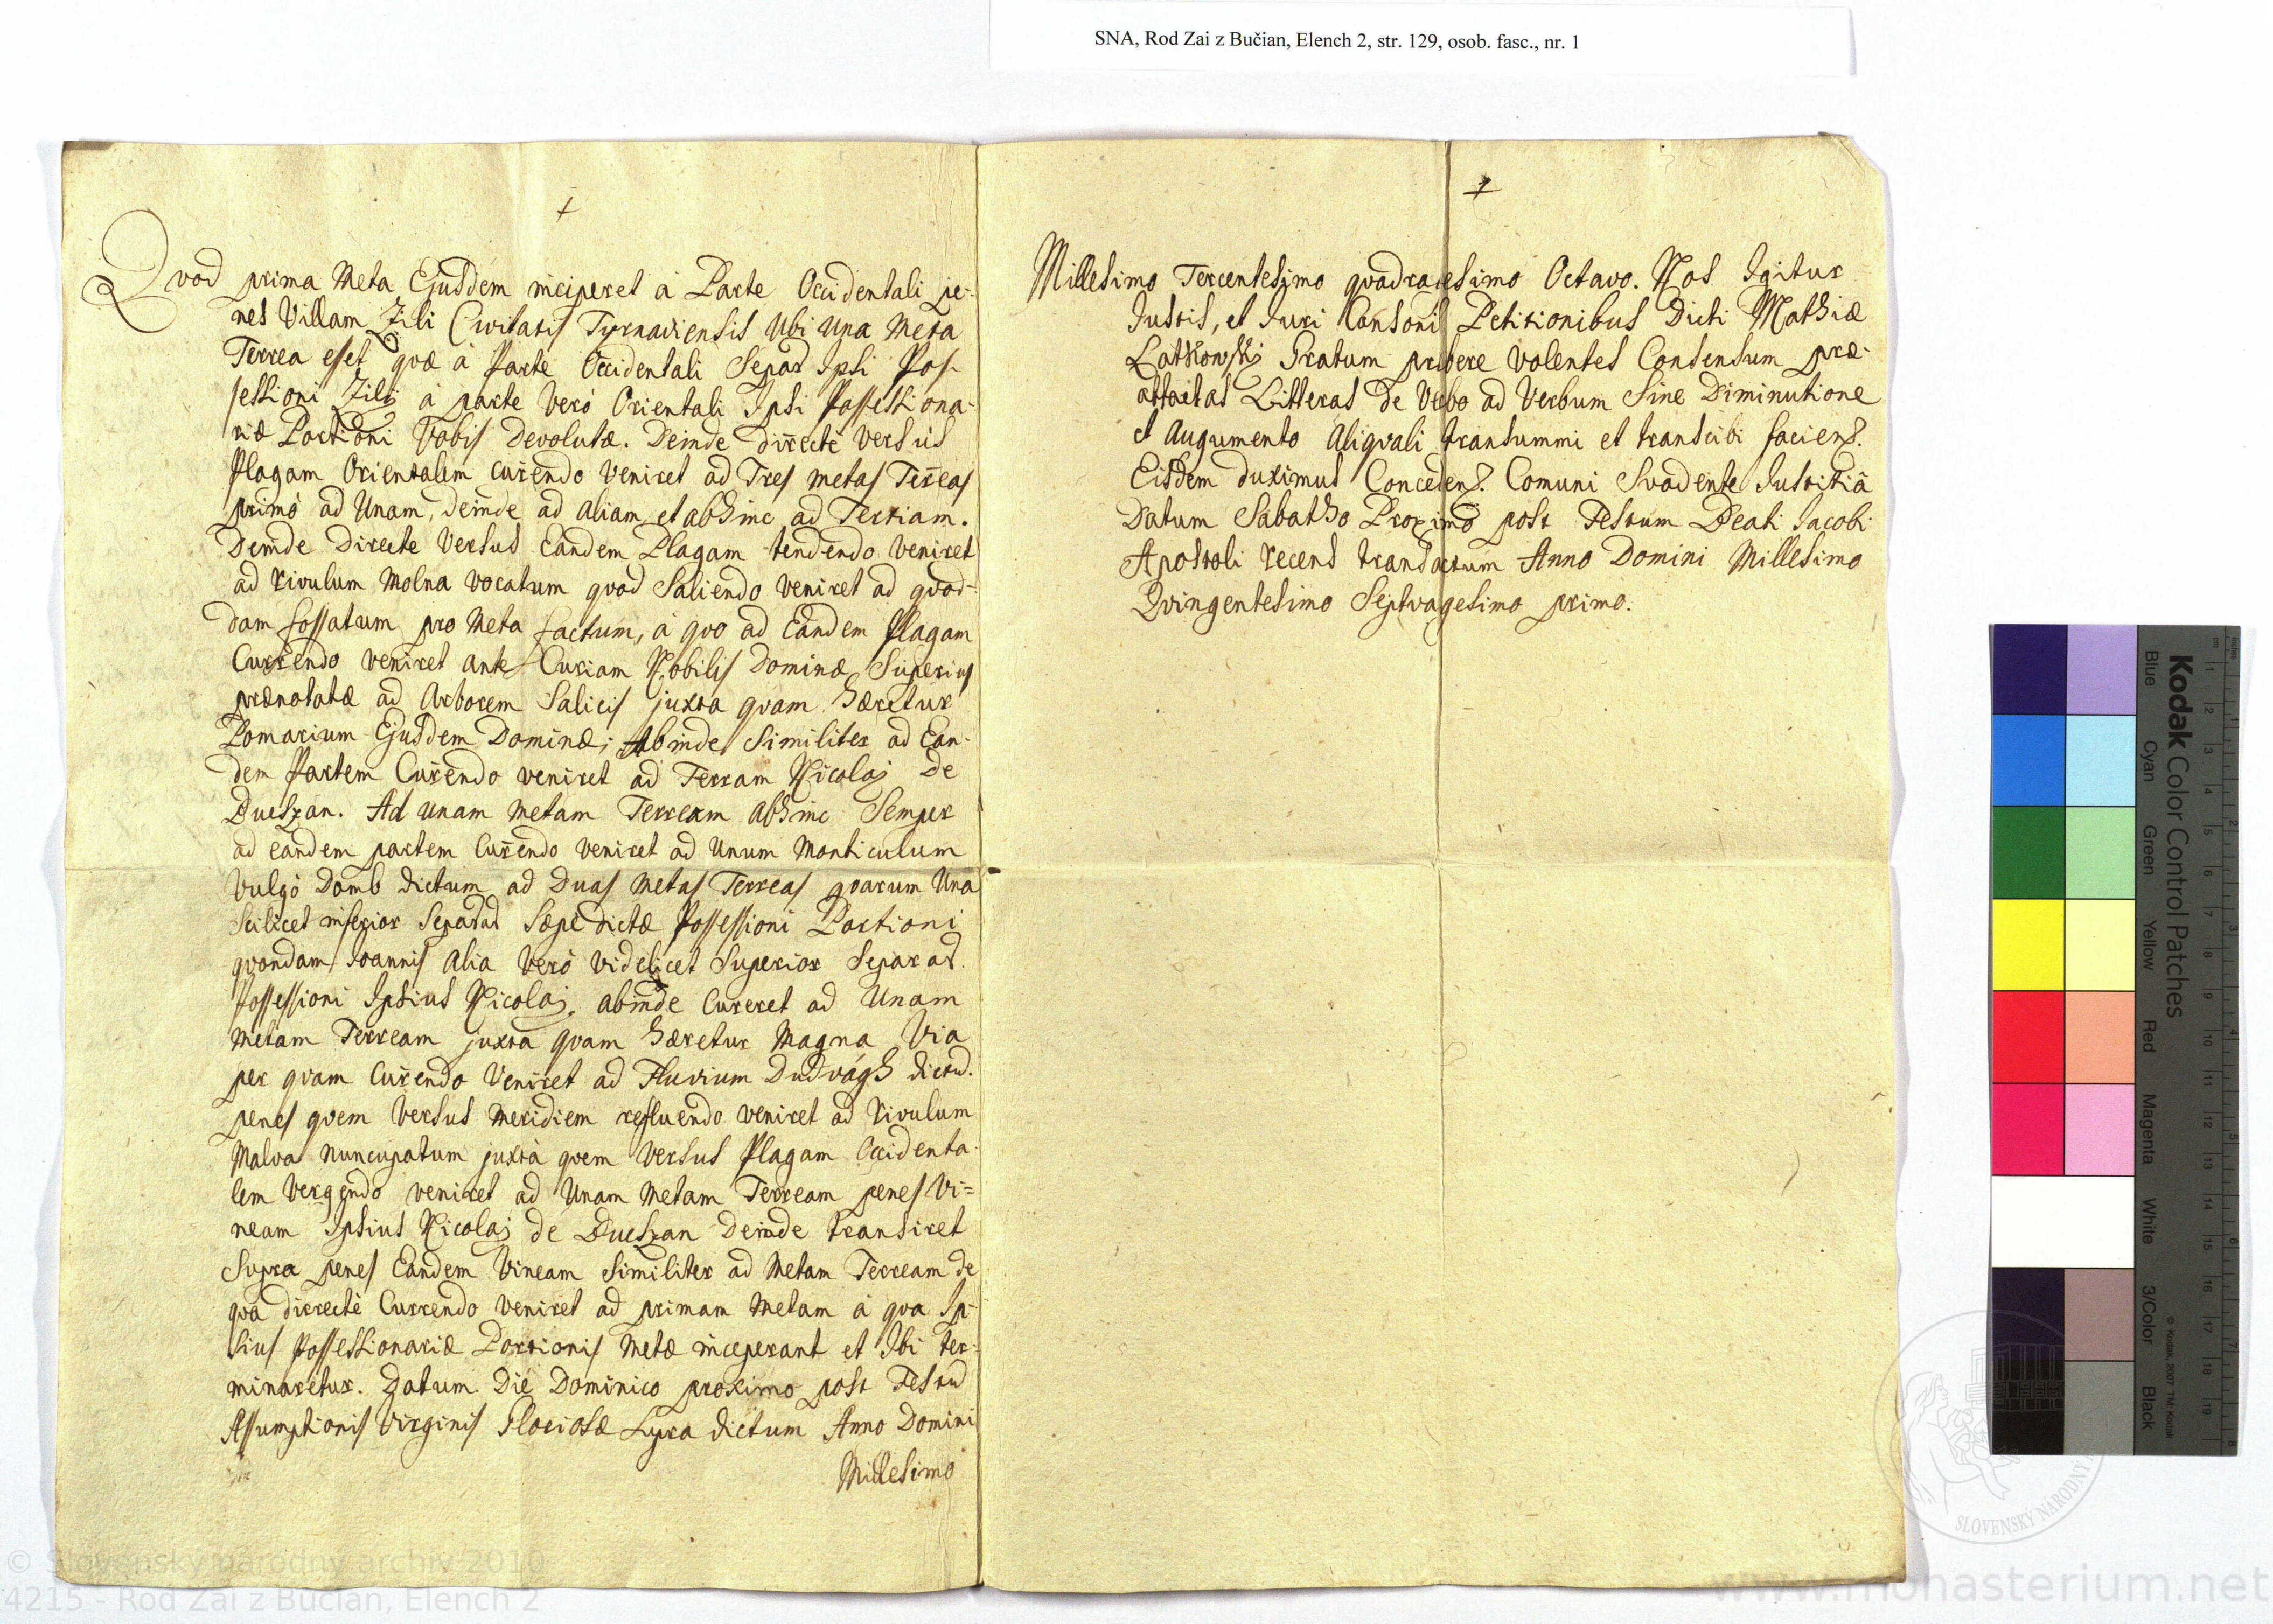 SNA, Rod Zai z Bučian, Elench 2, str. 129, osob. fasc., nr. 1
Qvod prima Meta Ejusdem inciperet à Parte Occidentali pe-
nes Villam Zili Civitatis Tyrnaviensis Ubi Una Meta
Terrea esset qvæ à Parte Occidentali Separ Ipsi Pos-
sessioni Zili à parte Verò Orientali Ipsi Possessiona-
riæ Portioni Vobis Devolutæ. Deinde directè Versùs
Plagam Orientalem currendo Veniret ad Tres metas Terreas
primò ad Unam, deinde ad aliam et abhinc ad Tertiam.
Deinde Directe Versus Eandem Plagam tendendo veniret
ad rivulum Molna vocatum qvod Saliendo veniret ad qvod-
dam fossatum pro Meta factum, à qvo ad Eandem Plagam
Currendo veniret ante Curiam Nobilis Dominæ Superius
prænotatæ ad Arborem Salicis juxta qvam hæretur
Pomarium Ejusdem Dominæ; Abinde Similiter ad Ean-
dem Partem Currendo veniret ad Terram Nicolaj De
Dueszan. Ad unam metam Terream abhinc Semper
ad eandem partem Currendo veniret ad Unum Monticulum
Vulgò Domb dictum ad Duas Metas Terreas qvarum Una
Scilicet inferior Separat Sæpe dictæ Possessioni Portioni
qvondam Joannis alia Verò videlicet Superior Separat.
Possessioni Ipsius Nicolaj. abinde Curreret ad Unam
Metam Terream juxta qvam hæretur Magna Via
per qvam Currendo Veniret ad Fluvium Dudvágh dictu.
penes qvem Versus meridiem refluendo veniret ad rivulum
Malva nuncupatum juxtà qvem Versus Plagam Occidenta-
lem Vergendo veniret ad Unam Metam Terream penes Vi=
neam Ipsius Nicolaj de Dueszan Deinde transiret
Supra penes Eandem Vineam Similiter ad Metam Terream de
qva directè Currendo Veniret ad primam Metam à qva Ip-
sius Possessionariæ Portionis Metæ inceperant et Ibi ter-
minaretur. Datum Die Dominico proximo post Festu
Assumptionis Virginis Gloriosæ Supra dictum Anno Domini
Millesimo
Millesimo Tercentesimo qvadragesimo Octavo. Nos Igitur
Justis, et Juri Consonis Petitionibus Dicti Mathiæ
Latkowski Gratum præbere volentes Consensum præ-
attactas Litteras de Verbo ad Verbum Sine Diminutione
et Augumento Aliqvali transummi et transcibi faciend.
Eisdem duximus Concedend. Comuni Svadente Justitiâ
Datum Sabatho Proximo post Festum Beati Jacobi
Apostoli recens transactum Anno Domini Millesimo
Qvingentesimo Septvagesimo primo.
Kodak Color Control Patches
Blue Cyan Green Yellow Red Magenta White 3/Color Black
© Kodak, 2007 TM: Kodak
SLOVENSKÝ NÁRODNÝ
© Slovenský národný archív 2010
4215 - Rod Zai z Bučian, Elench 2
www.monasterium.net